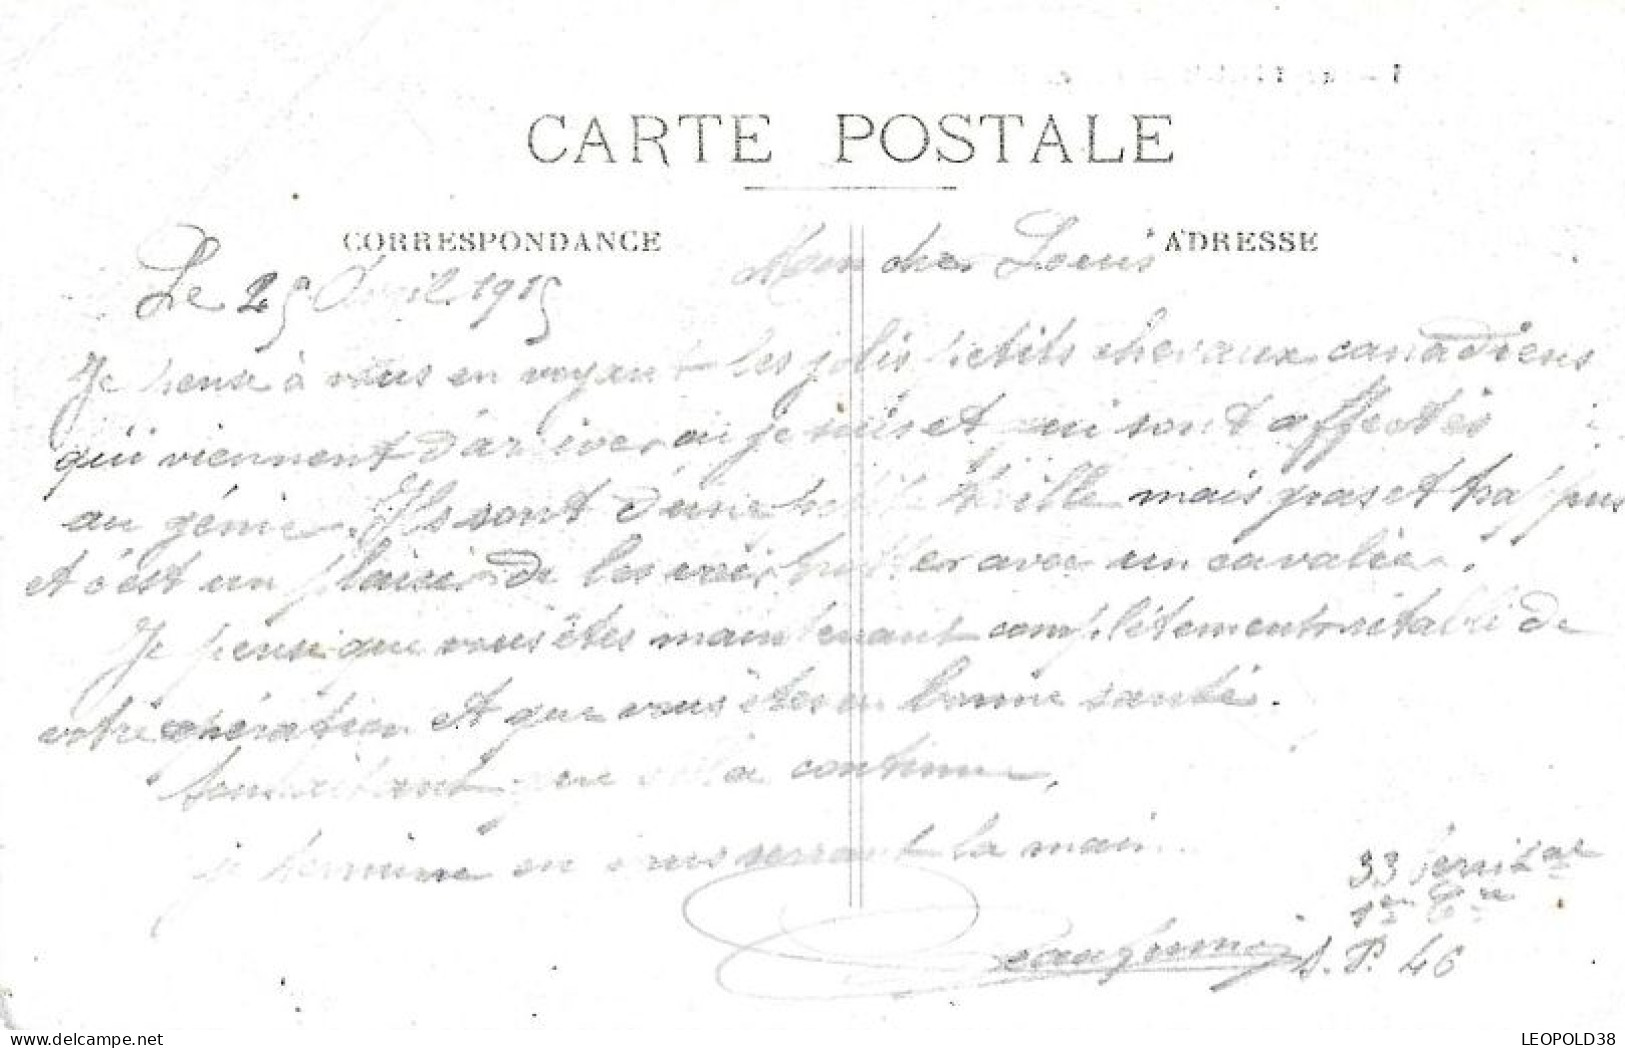 CARTE POSTALE
CORRESPONDANCE
ADRESSE
Le 25 Avril 1915
Mon cher Louis
Je pense à vous en voyant les jolis petits chevaux canadiens
qui viennent d'arriver où je suis et qui sont affectés
au génie. Ils sont d'une petite taille mais gras et trappus
et c'est un plaisir de les voir avec un cavalier.
Je pense que vous êtes maintenant complètement rétabli de
votre opération et que vous êtes en bonne santé.
Souhaitant que continue,
je termine en vous serrant la main.
33
1er
S. P. 46
delcampe.net
LEOPOLD38